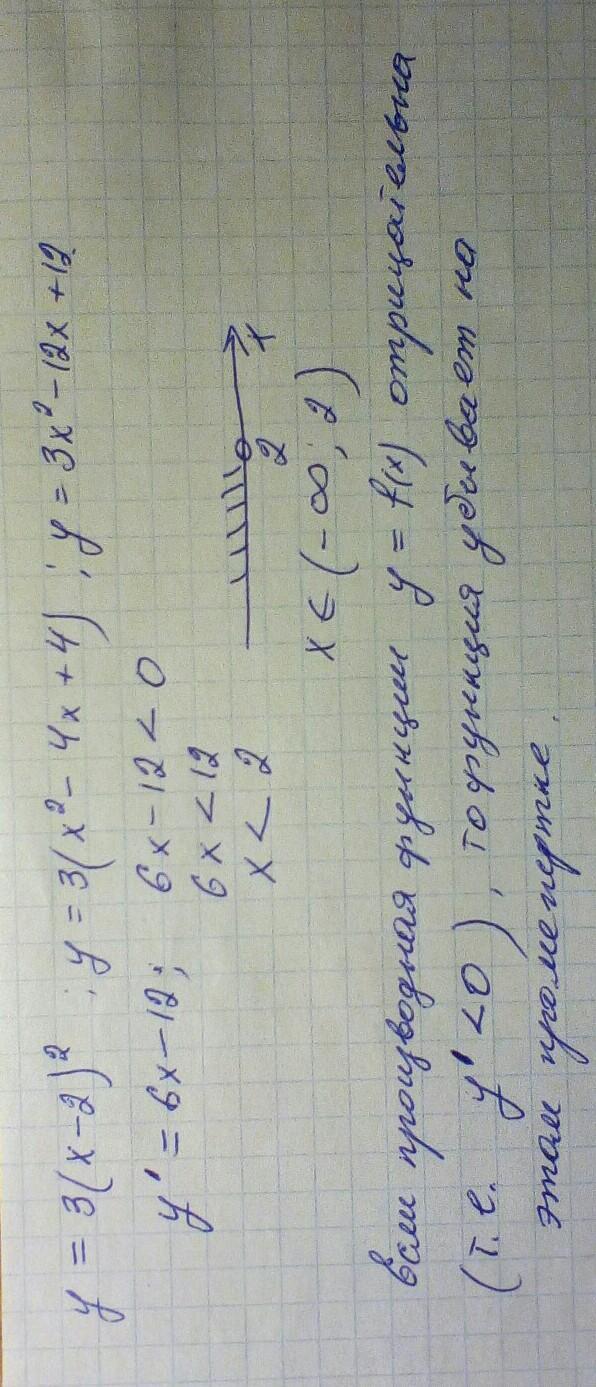 y = 3(x-2)² ; y = 3(x² - 4x + 4) ; y = 3x² - 12x + 12
y' = 6x - 12; 6x - 12 < 0
6x < 12
x < 2
2 x
x ∈ (-∞; 2)
Если производная функции y = f(x) отрицательна
(т.е. y' < 0), то функция убывает на
этом промежутке.